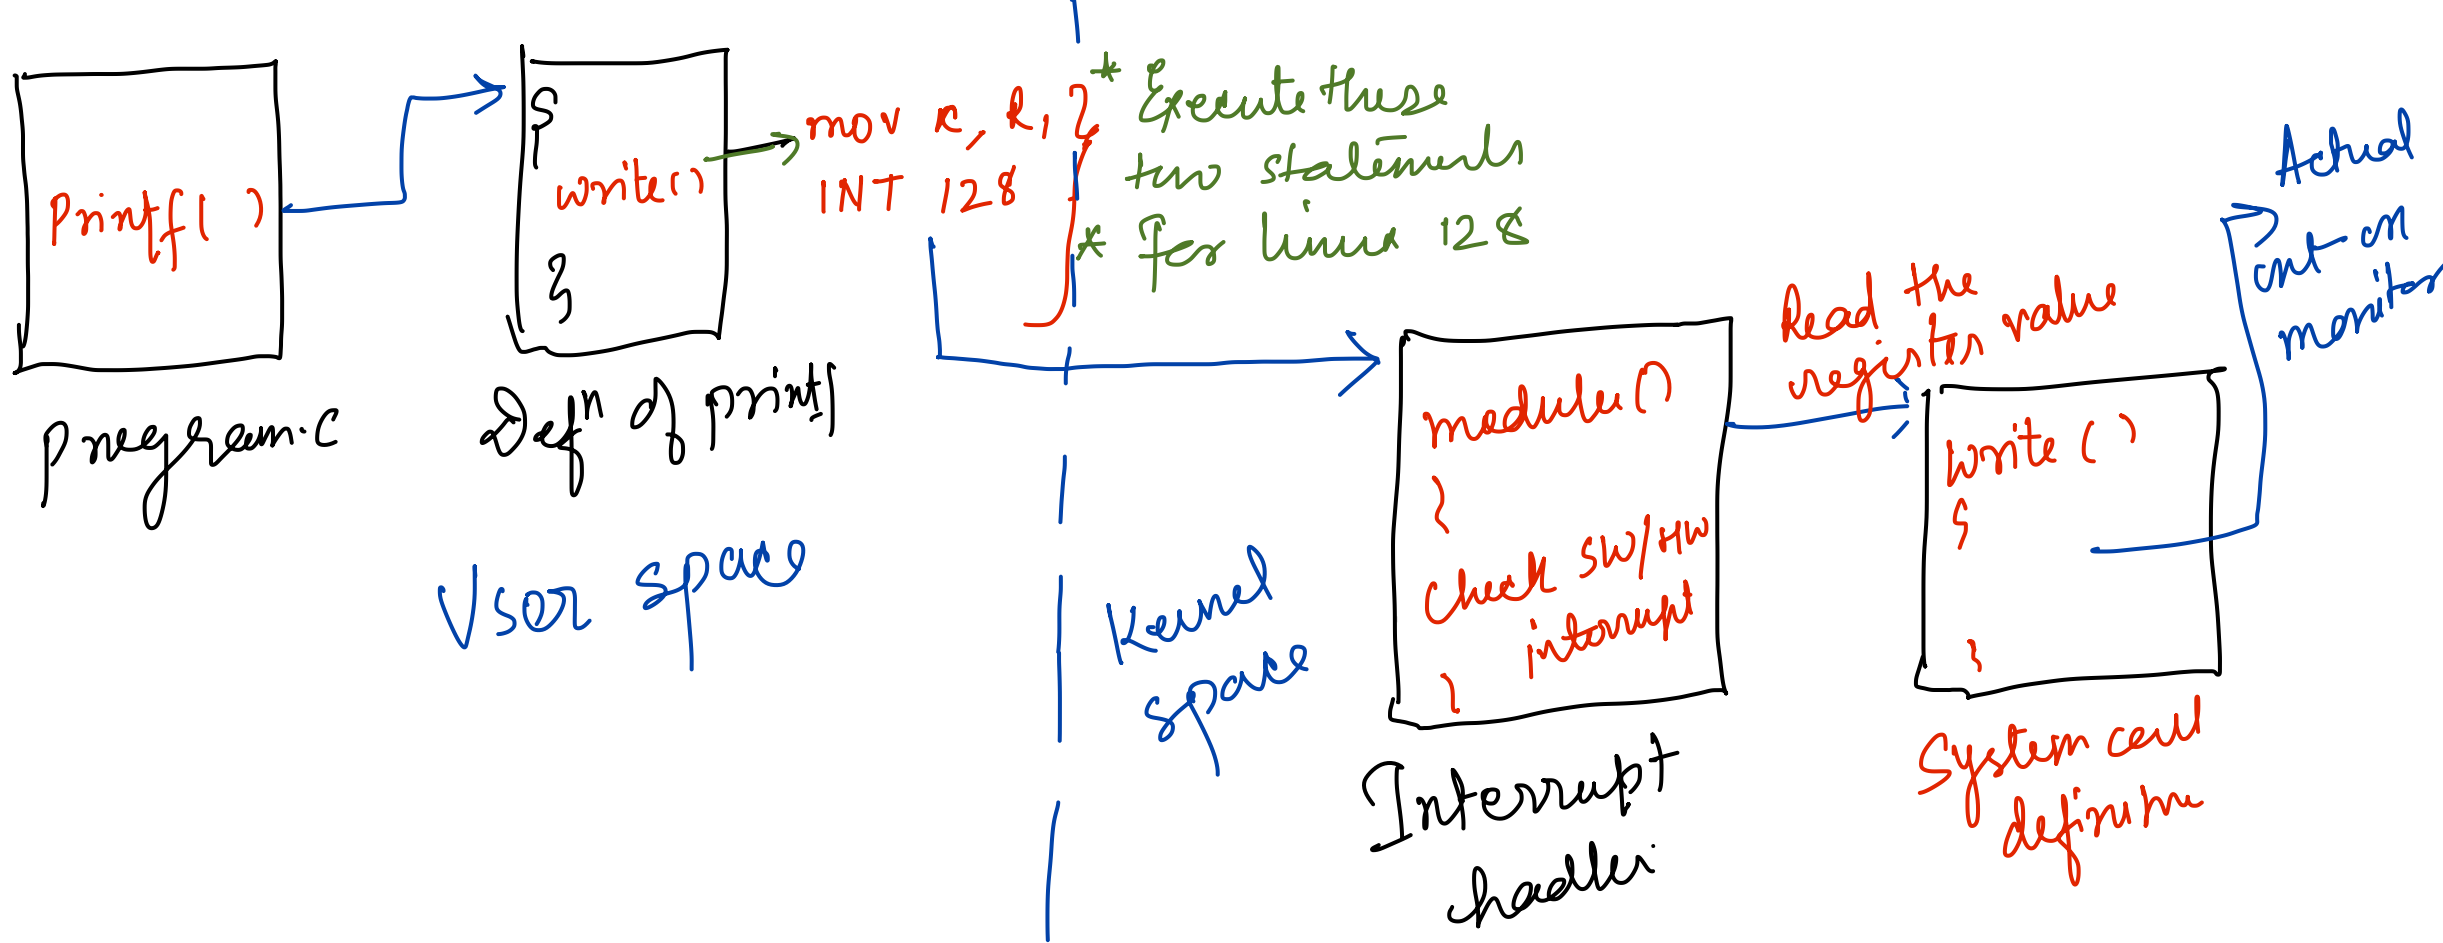 Printf( )
Program.c
{
write()
}
Defn of printf
mov
INT 128
* Execute these
two statements
* For linux 128
User space
Kernel
space
module()
{
check SW/HW
interrupt
}
Interrupt
hadler
Read the
register value
write ( )
{
}
System call
definition
Actual
on
monitor